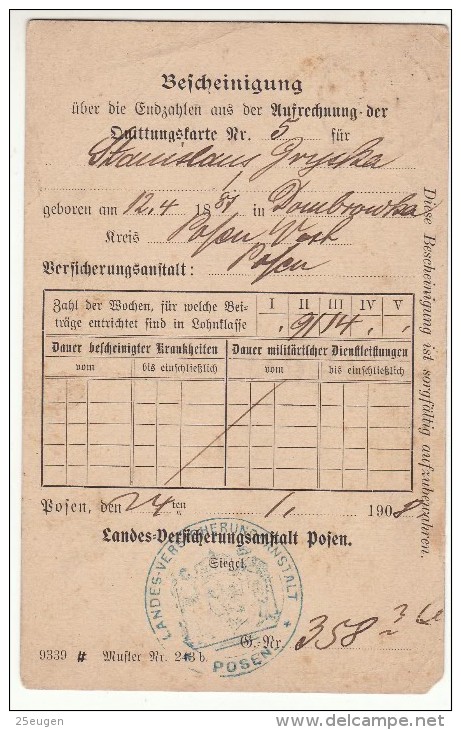 Bescheinigung
über die Endzahlen aus der Aufrechnung der
Quittungskarte Nr. 5 für
Stanislaus
geboren am 12.4 1881 in Dombrowka
Kreis Posen West
Versicherungsanstalt: Posen
Zahl der Wochen, für welche Bei-
träge entrichtet sind in Lohnklasse
I II III IV V
9 14
Dauer bescheinigter Krankheiten Dauer militärischer Dienstleistungen
vom bis einschließlich vom bis einschließlich
Posen, den 24ten 1. 1908
Landes-Versicherungsanstalt Posen.
Siegel.
LANDES-VERSICHERUNGSANSTALT
POSEN
G.-Nr. 358
9339 # Muster Nr. 243 b.
Diese Bescheinigung ist sorgfältig aufzubewahren.
25eugen
delcampe.net